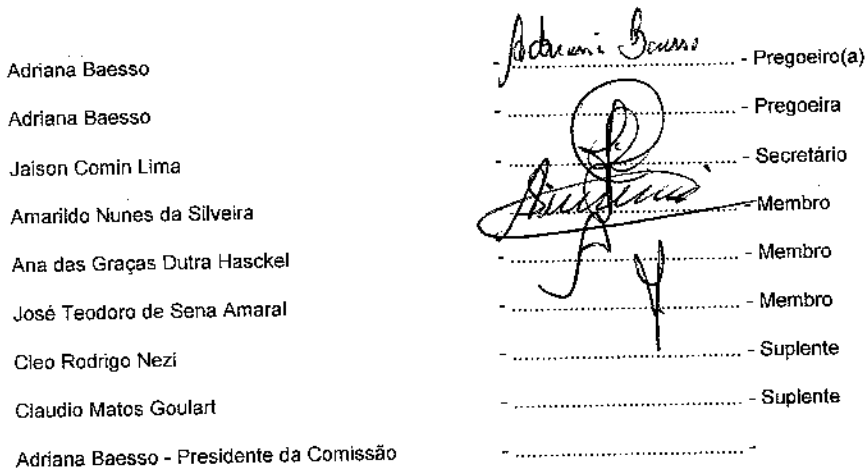 Adriana Baesso - Adriana Baesso - Pregoeiro(a)
Adriana Baesso - ........................................ - Pregoeira
Jaison Comin Lima - ........................................ - Secretário
Amarildo Nunes da Silveira - ........................................ - Membro
Ana das Graças Dutra Hasckel - ........................................ - Membro
José Teodoro de Sena Amaral - ........................................ - Membro
Cleo Rodrigo Nezi - ........................................ - Suplente
Claudio Matos Goulart - ........................................ - Suplente
Adriana Baesso - Presidente da Comissão - ........................................ -